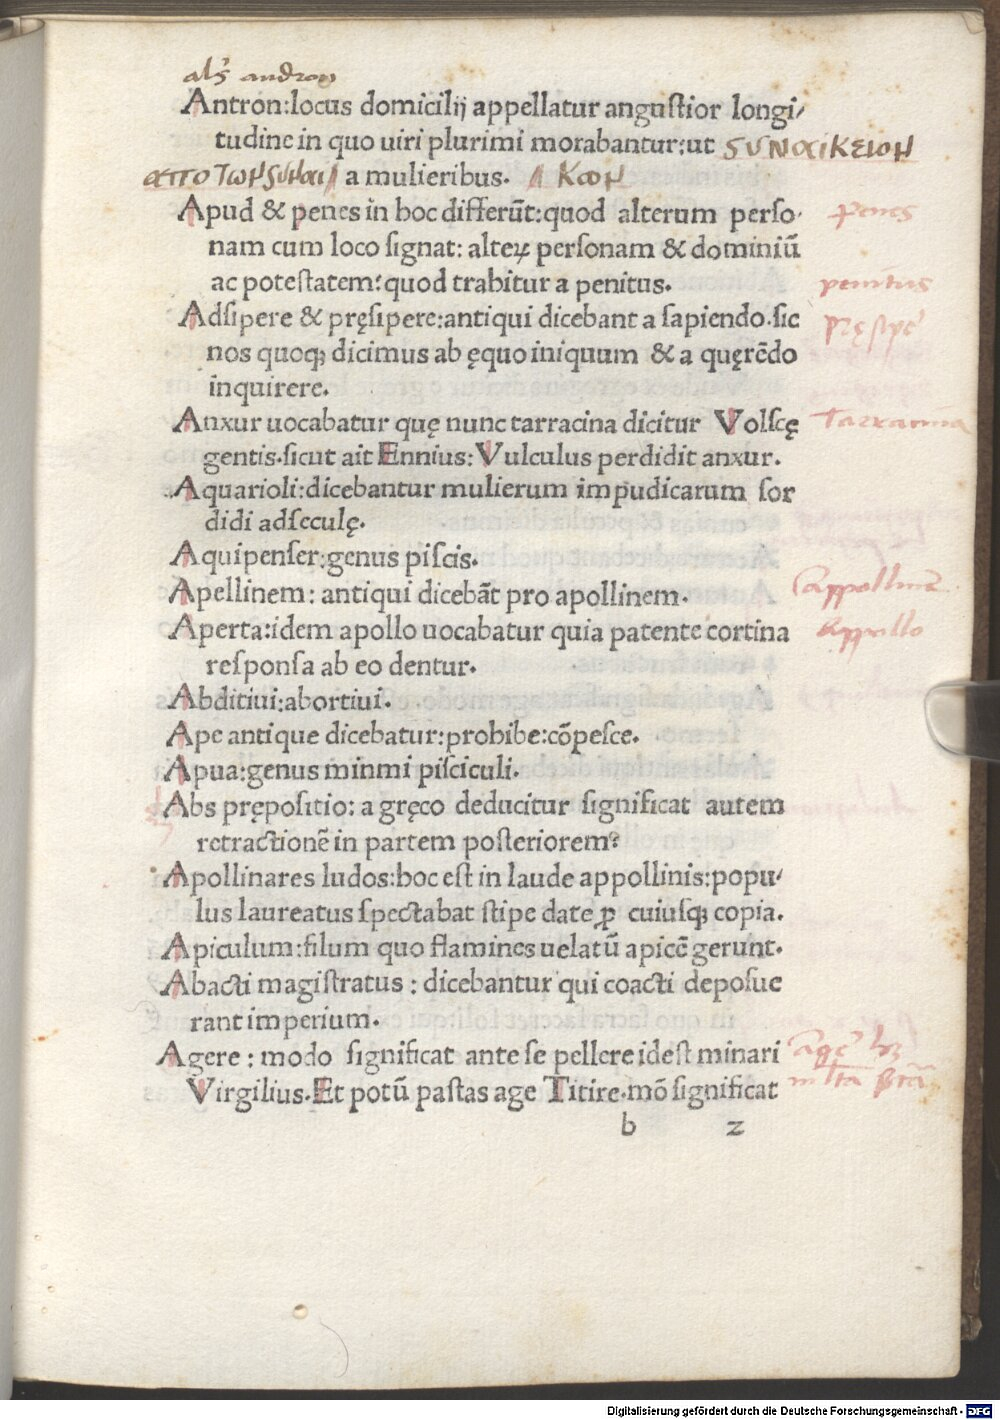 als andron
Antron:locus domicilij appellatur angustior longi/
tudine in quo uiri plurimi morabantur:ut ΓΥΝΑΙΚΕΙΟΝ
ΑΠΟ ΤΩΝ ΓΥΝΑΙ // a mulieribus. // ΚΩΝ
Apud & penes in hoc differūt:quod alterum perso- penes
nam cum loco signat: alteꝝ personam & dominiū
ac potestatem:quod trahitur a penitus. penitus
Adsipere & pręsipere:antiqui dicebant a sapiendo.sic pręsipe
nos quoqꝫ dicimus ab ęquo iniquum & a quęrēdo
inquirere.
Anxur uocabatur quę nunc tarracina dicitur Volscę Tarracina
gentis.sicut ait Ennius:Vulculus perdidit anxur.
Aquarioli:dicebantur mulierum impudicarum sor
didi adseculę.
Aquipenser:genus piscis.
Apellinem: antiqui dicebāt pro apollinem. Appollinē
Aperta:idem apollo uocabatur quia patente cortina Appollo
responsa ab eo dentur.
Abditiui:abortiui.
Ape antique dicebatur:prohibe:cōpesce.
Apua:genus minmi pisciculi.
Abs prępositio: a gręco deducitur significat autem
retractionē in partem posteriorem?
Apollinares ludos:hoc est in laude appollinis:popu/
lus laureatus spectabat stipe date ꝓ cuiusqꝫ copia.
Apiculum:filum quo flamines uelatū apicē gerunt.
Abacti magistratus : dicebantur qui coacti deposue
rant imperium.
Agere : modo significat ante se pellere idest minari agē hꝫ
Virgilius.Et potū pastas age Titire.mō significat
b z
Digitalisierung gefördert durch die Deutsche Forschungsgemeinschaft - DFG